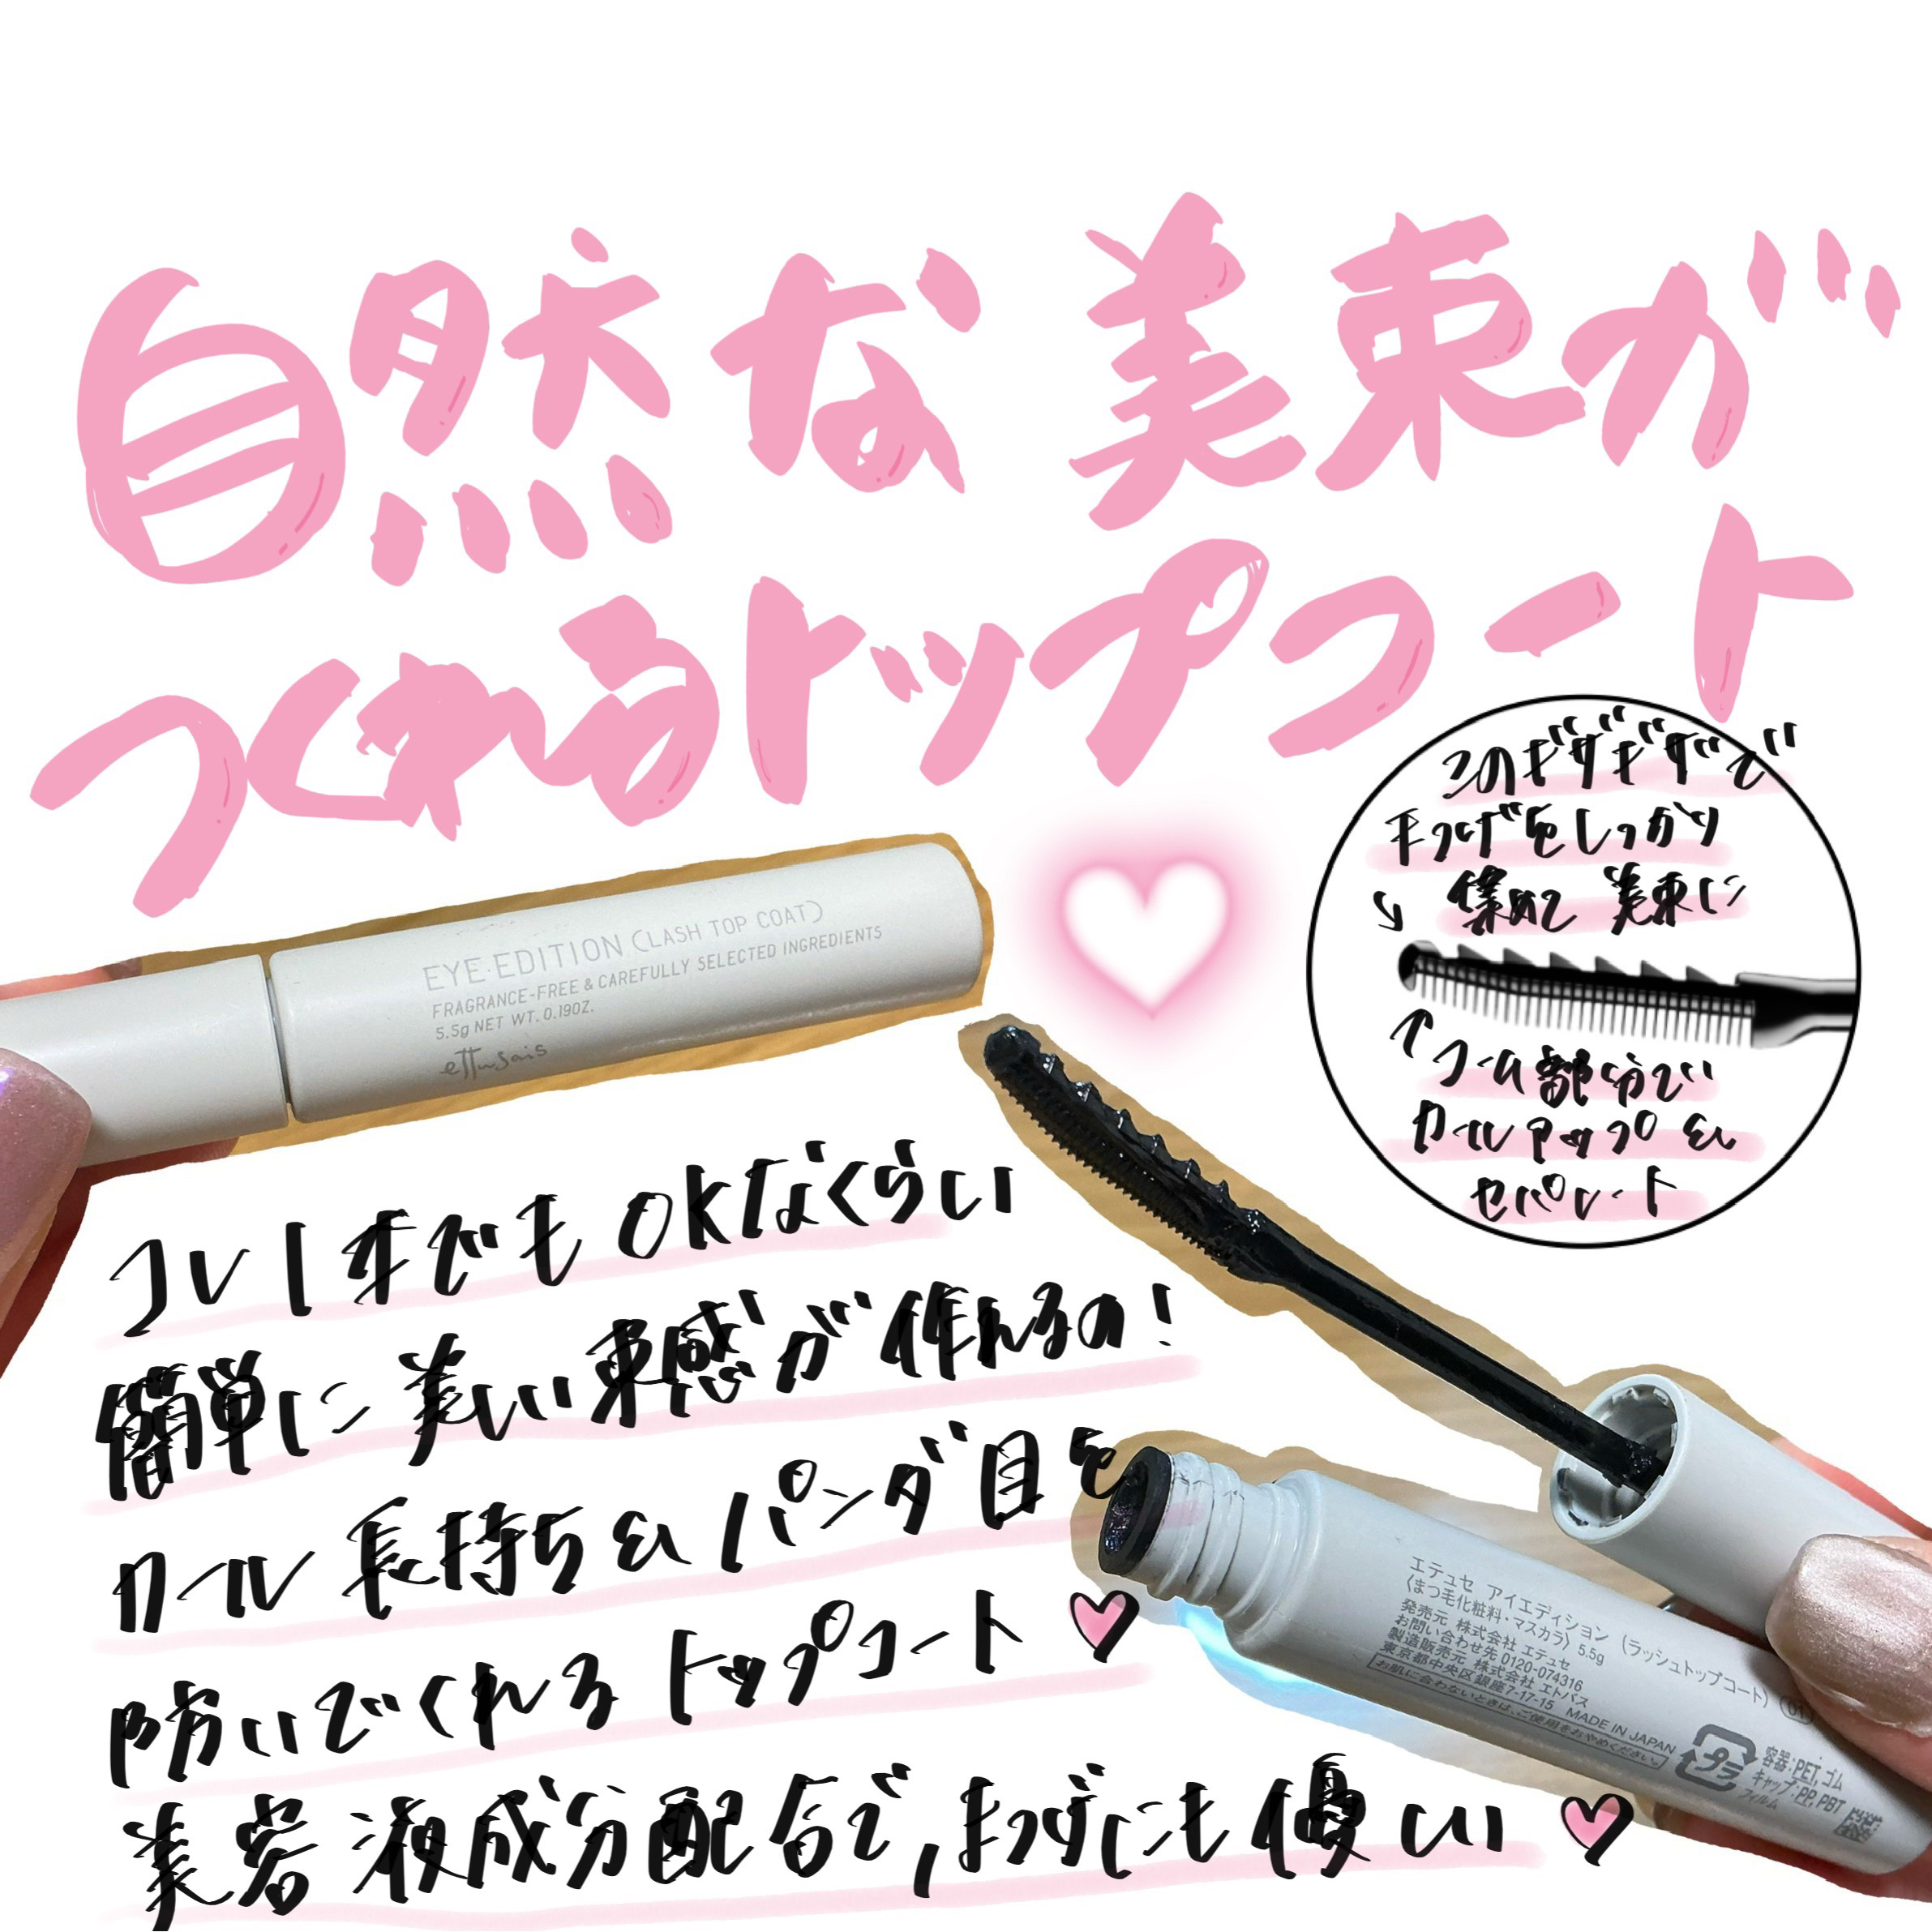 自然な美束が
つくれるトップコート
このギザギザで
まつげをしっかり
集めて美束に
↑コーム部分で
カールアップ&
セパレート
EYE・EDITION (LASH TOP COAT)
FRAGRANCE-FREE & CAREFULLY SELECTED INGREDIENTS
5.5g NET WT. 0.19OZ.
ettusais
コレ1本でもOKなくらい
簡単に美しい束感が作れるの!
カール長持ち&パンダ目を
防いでくれるトップコート♡
美容液成分配合で,まつげにも優しい♡
エテュセ アイエディション (ラッシュトップコート) 01
〈まつ毛化粧料・マスカラ〉 5.5g
発売元 株式会社 エテュセ
お問い合わせ先 0120-074316
製造販売元 株式会社 エトバス
東京都中央区銀座7-17-15 MADE IN JAPAN
お肌に合わないときは、ご使用をおやめください。
プラ
容器:PET, ゴム
キャップ:PP, PBT
フィルム